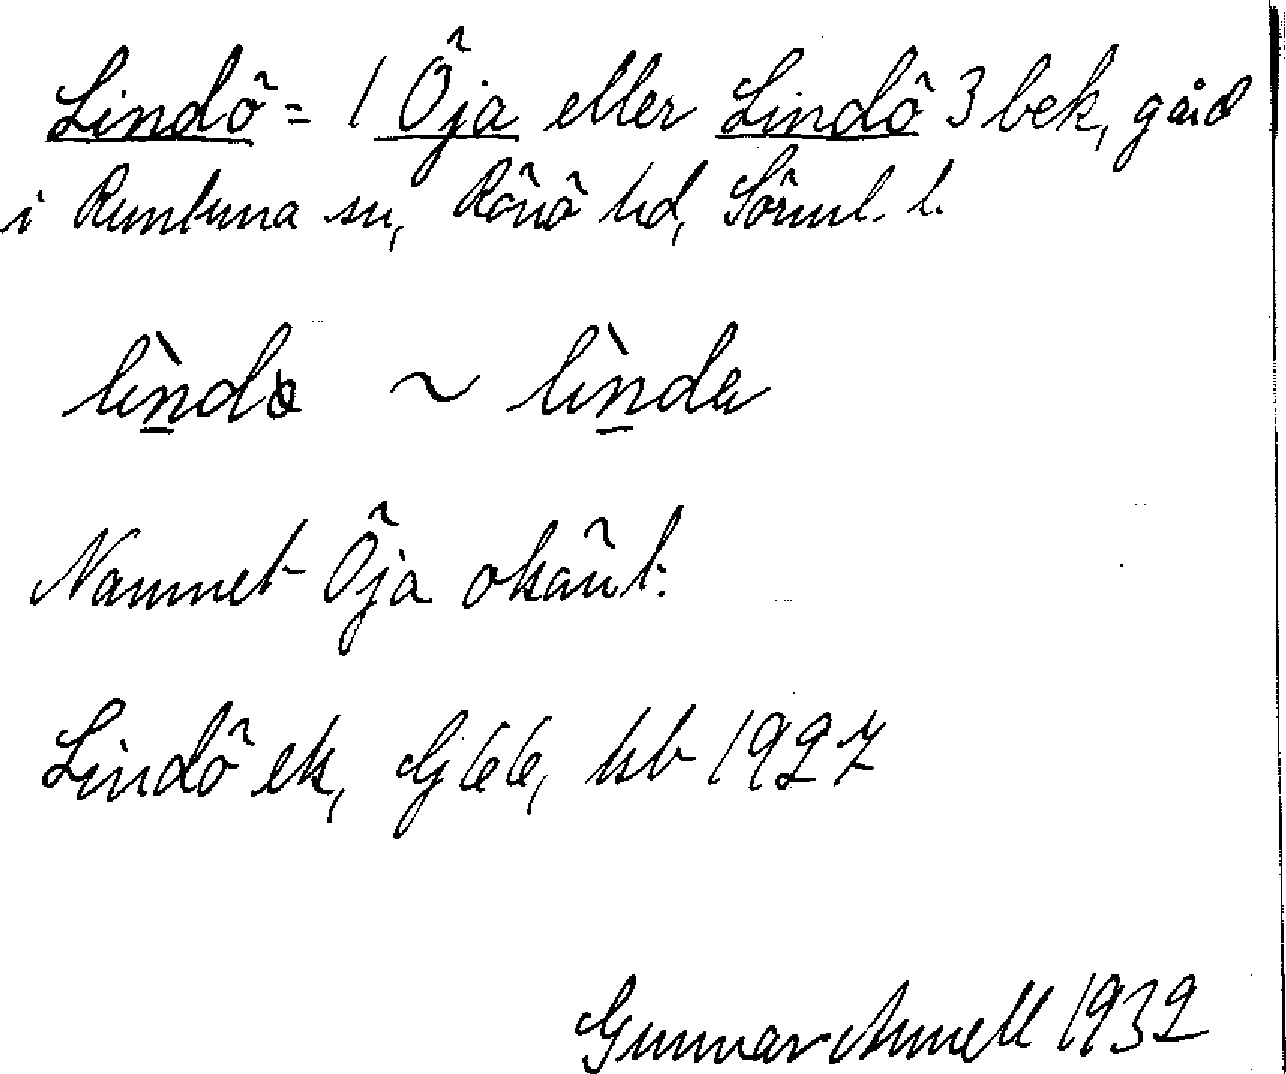 Lindö = 1 Öja eller Lindö 3 bek, gård
i Runtuna sn, Rönö hd, Sörml. l.
lìndo ~ lìnda
Namnet Öja okänt.
Lindö ek, Gj 66, hb 1927
Gunnar Amnell 1932